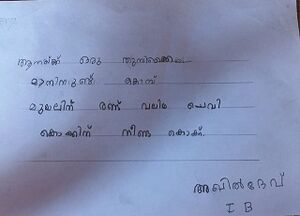 ആനയ്ക്ക് ഒരു തുമ്പിക്കൈ
മാനിനുണ്ട് കൊമ്പ്
മുയലിന് രണ്ട് വലിയ ചെവി
കൊക്കിന് നീണ്ട കൊക്ക്.
അഖിൽദേവ്
I B